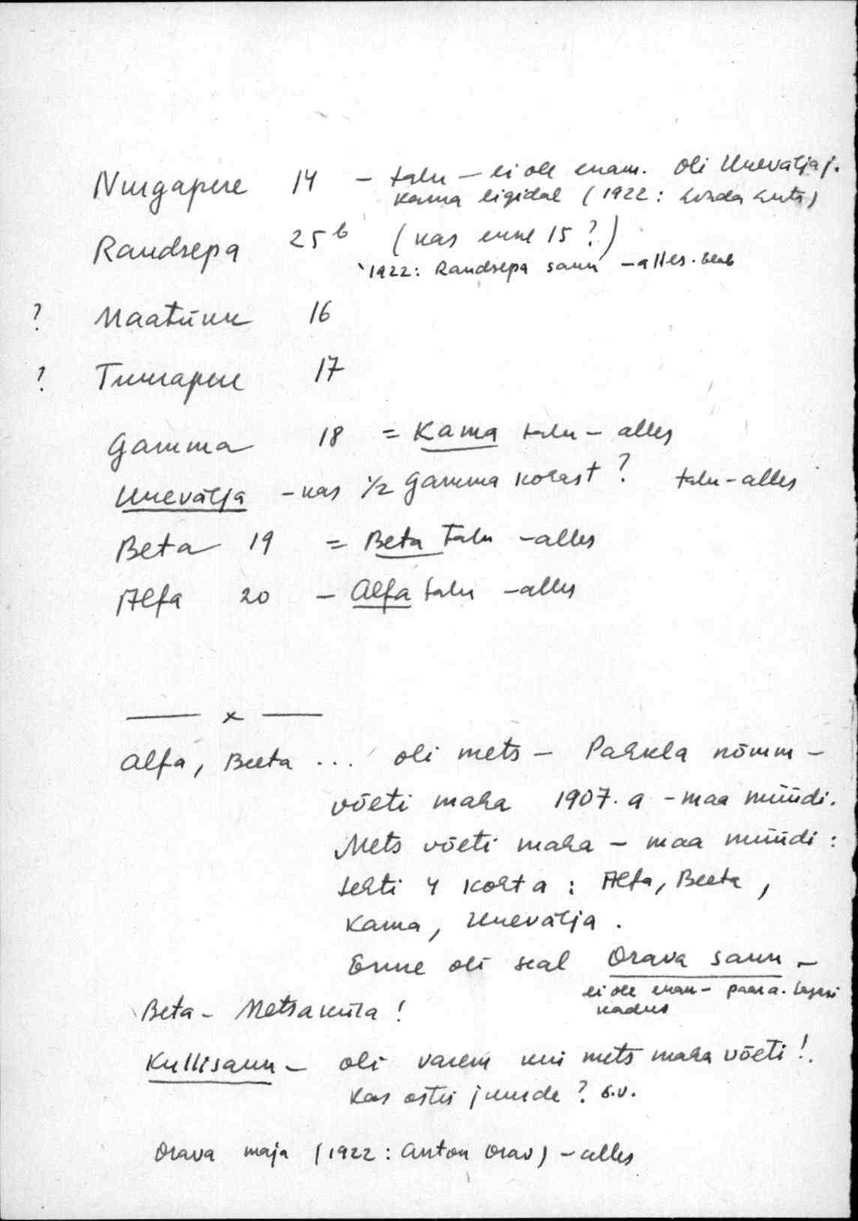 Nurgapere 14 – talu – ei ole enam. Oli Unevälja j.
Kama ligidal (1922:
Raudsepa 25b (kas enne 15?)
1922: Raudsepa saun – alles.
? Maatünni 16
? Tuurapere 17
Gamma 18 = Kama talu – alles
Unevälja – kas 1/2 Gamma kohast? talu – alles
Beta 19 = Beta Talu – alles
Alfa 20 – Alfa talu – alles
— x —
Alfa, Beeta ... oli mets – Pahkla nõmm –
võeti maha 1907. a – maa müüdi.
Mets võeti maha – maa müüdi:
tehti 4 kohta: Alfa, Beeta,
Kama, Unevälja.
Enne oli seal Orava saun –
ei ole enam –
kadus
Beta – Metsaküla!
Kullisaun – oli varem kui mets maha võeti!
Kas ostis juurde? s.v.
Orava maja (1922: Anton Orav) – alles